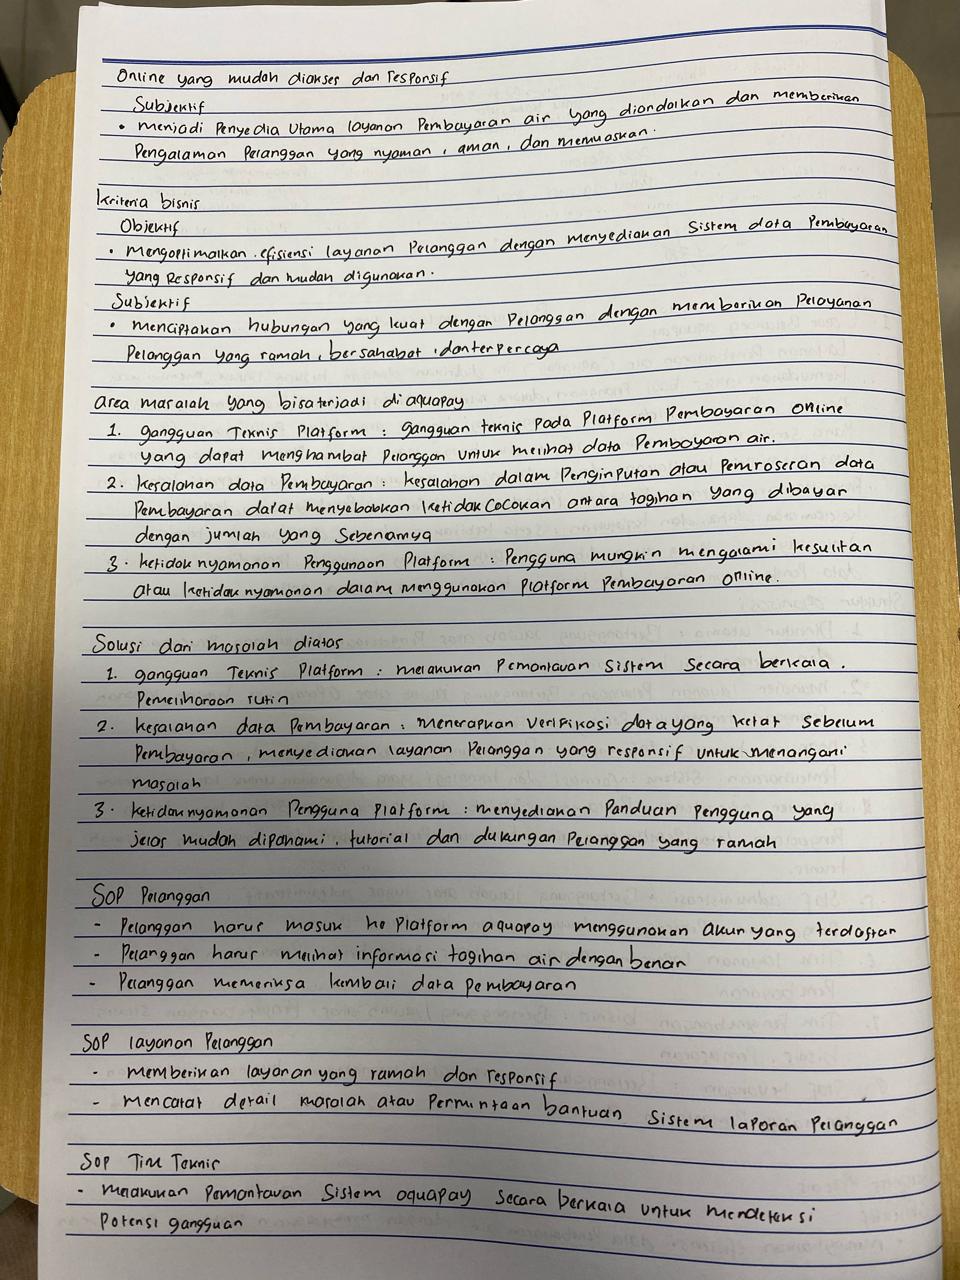 Online yang mudah diakses dan responsif
Subjektif
• menjadi Penyedia Utama layanan Pembayaran air yang diandalkan dan memberikan
Pengalaman Pelanggan yang nyaman, aman, dan memuaskan.
kriteria bisnis
Objektif
• Mengoptimalkan efisiensi layanan Pelanggan dengan menyediakan Sistem data Pembayaran
yang Responsif dan mudah digunakan.
Subjektif
• menciptakan hubungan yang kuat dengan Pelanggan dengan memberikan Pelayanan
Pelanggan yang ramah, bersahabat, dan terpercaya
area masalah yang bisa terjadi di aquapay
1. gangguan Teknis Platform : gangguan teknis pada Platform Pembayaran online
yang dapat menghambat Pelanggan untuk melihat data Pembayaran air.
2. kesalahan data Pembayaran : kesalahan dalam Penginputan atau Pemrosesan data
Pembayaran dapat menyebabkan ketidakcocokan antara tagihan yang dibayar
dengan jumlah yang Sebenarnya
3. ketidaknyamanan Penggunaan Platform : Pengguna mungkin mengalami kesulitan
atau ketidaknyamanan dalam menggunakan Platform Pembayaran online.
Solusi dari masalah diatas
1. gangguan Teknis Platform : melakukan Pemantauan Sistem Secara berkala.
Pemeliharaan rutin
2. kesalahan data Pembayaran : menerapkan verifikasi data yang ketat sebelum
Pembayaran, menyediakan layanan Pelanggan yang responsif untuk menangani
masalah
3. ketidaknyamanan Pengguna Platform : menyediakan Panduan Pengguna yang
jelas mudah dipahami, tutorial dan dukungan Pelanggan yang ramah
SOP Pelanggan
- Pelanggan harus masuk ke Platform aquapay menggunakan akun yang terdaftar
- Pelanggan harus melihat informasi tagihan air dengan benar
- Pelanggan memeriksa kembali data pembayaran
SOP layanan Pelanggan
- memberikan layanan yang ramah dan responsif
- mencatat detail masalah atau Permintaan bantuan Sistem laporan Pelanggan
SOP Tim Teknis
- melakukan Pemantauan Sistem aquapay secara berkala untuk mendeteksi
Potensi gangguan